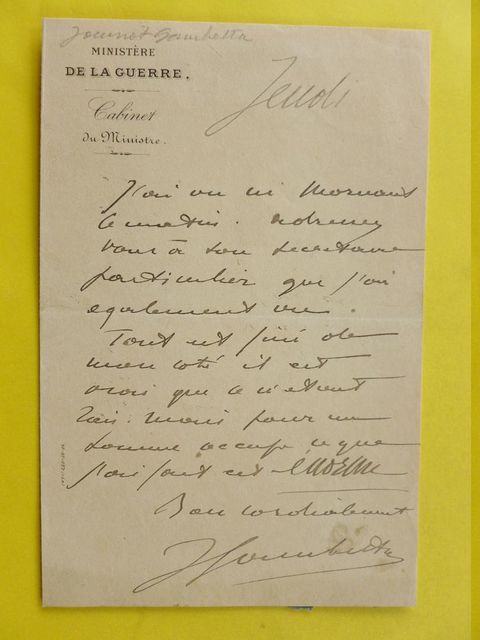 Journot Gambetta
MINISTÈRE
DE LA GUERRE.
Cabinet
du Ministre.
Jeudi
J'ai vu M Mornard
ce matin. adressez
vous à son secretaire
particulier que j'ai
egalement vu.
Tout est fini de
mon coté il est
vrai que ce n'etait
rien. mais pour un
homme occupé ce que
j'ai fait est enorme
Bien cordialement
J Gambetta